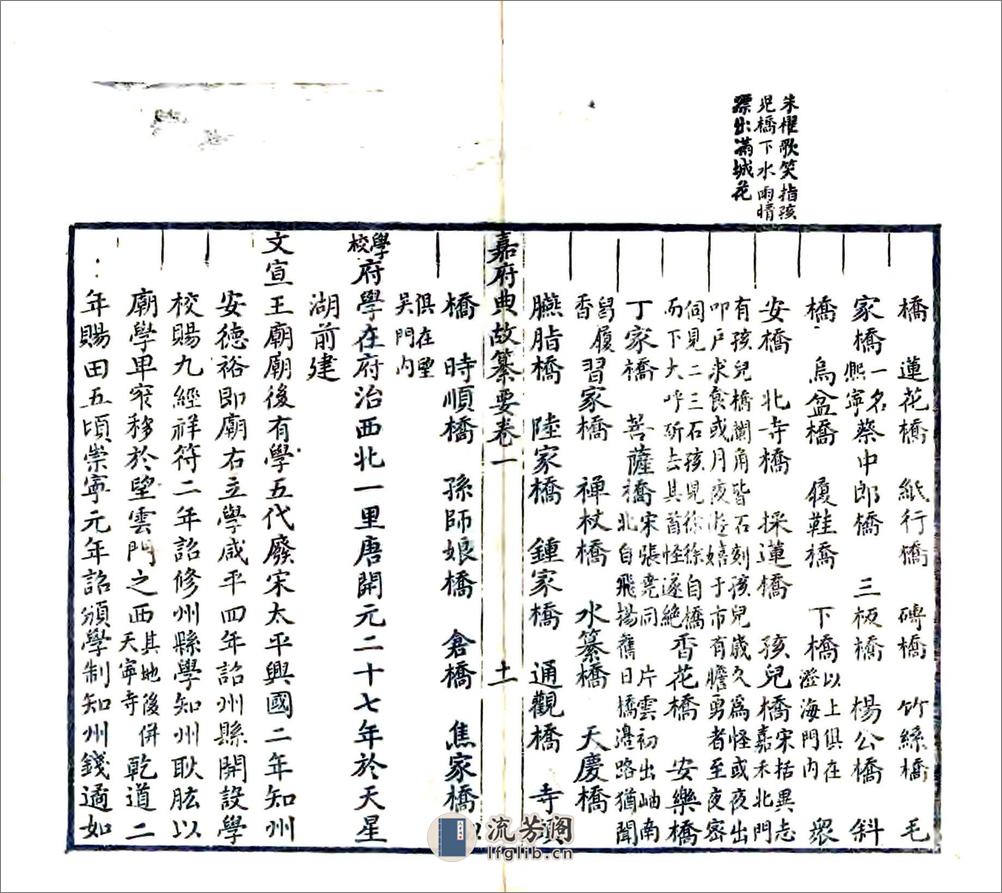 朱櫂歌笑指孩
児橋下水雨晴
漂出滿城花
橋　蓮花橋　紙行橋　磚橋　竹絲橋　毛
家橋一名熙寧蔡中郎橋　三板橋　楊公橋　斜
橋　烏盆橋　履鞋橋　下橋以上俱在澄海門內　眾
安橋　北寺橋　採蓮橋　孩兒橋宋括異志嘉禾北門
有孩兒橋闌角皆石刻孩兒歲久為怪或夜出
叩戶求食或月夜遊嬉于市有膽勇者至夜密
伺見二三石孩兒徐徐自橋
而下大呼斫去其首怪遂絕　香花橋　安樂橋
丁家橋　菩薩橋宋張堯同　片雲初出岫南
北自飛揚舊日橋邊路猶聞
舄履香　習家橋　禪杖橋　水纂橋　天慶橋
臙脂橋　陸家橋　鍾家橋　通觀橋　寺
嘉府典故纂要卷一　十一
橋　時順橋　孫師娘橋　倉橋　焦家橋
俱在望吳門內
學校府學在府治西北一里唐開元二十七年於天星
湖前建
文宣王廟廟後有學五代廢宋太平興國二年知州
安德裕即廟右立學咸平四年詔州縣開設學
校賜九經祥符二年詔修州縣學知州耿肱以
廟學卑窄移於望雲門之西其地後併天寧寺　乾道二
年賜田五頃崇寧元年詔頒學制知州錢遹如
流芳閣
lfglib.cn